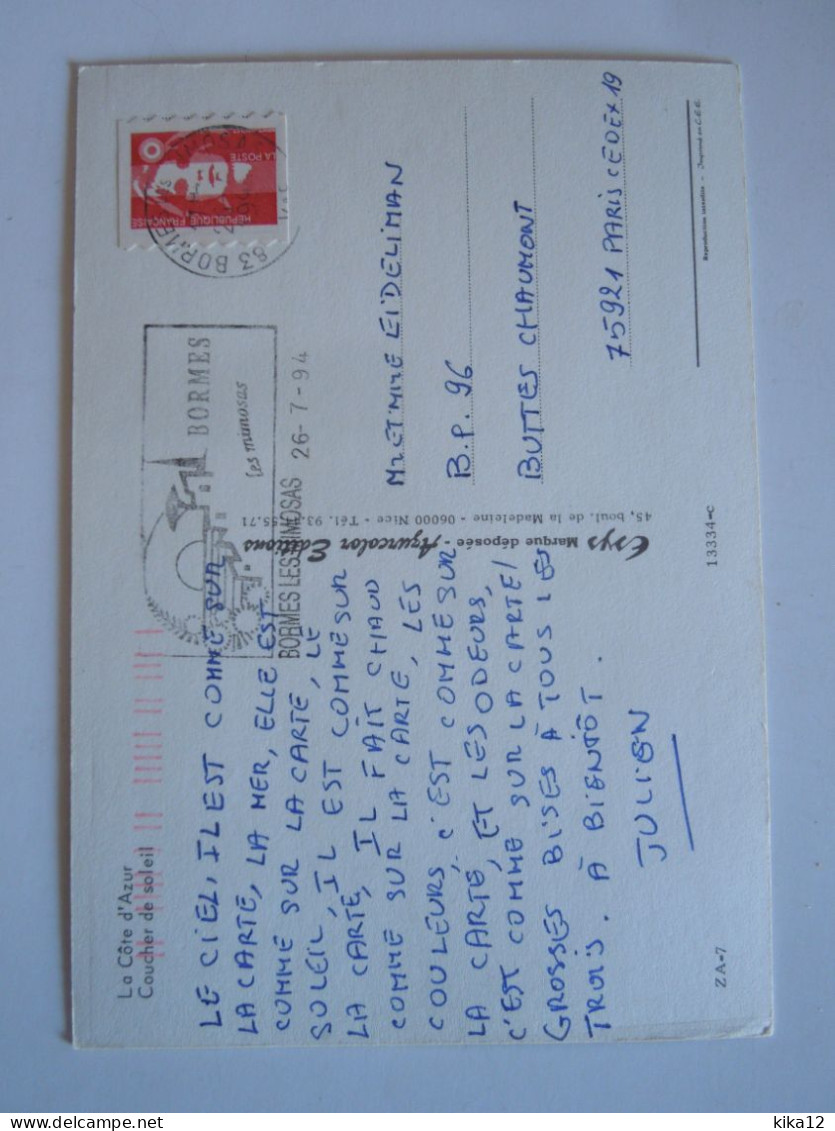 La Côte d'Azur
Coucher de soleil
LE CIEL, IL EST COMME SUR
LA CARTE, LA MER, ELLE EST
COMME SUR LA CARTE, LE
SOLEIL, IL EST COMME SUR
LA CARTE, IL FAIT CHAUD
COMME SUR LA CARTE, LES
COULEURS, C'EST COMME SUR
LA CARTE, ET LES ODEURS,
C'EST COMME SUR LA CARTE!
GROSSES BISES À TOUS LES
TROIS. À BIENTÔT.
JULIEN
ZA-7
Marque déposée - Azurcolor Editions
45, boul. de la Madeleine - 06000 Nice - Tél.
13334-C
LA POSTE
RÉPUBLIQUE FRANÇAISE
83 BORMES
BORMES
les mimosas
BORMES LES MIMOSAS 26-7-94
Mr ET MME EIDELIMAN
B.P. 96
BUTTES CHAUMONT
75921 PARIS CEDEX 19
Reproduction interdite - Imprimé en C.E.E.
kika12